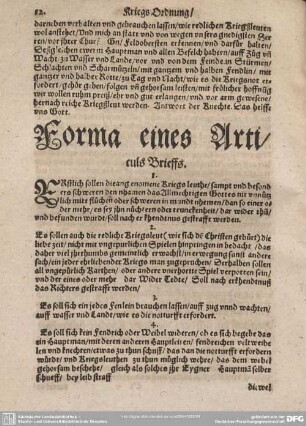 12. Kriegs Ordnung/
darneben verhalten vnd gebrauchen lassen/wie redlichen Kriegßleuten
wol anstehet/Vnd mich an statt vnd von wegen vnsers gnedigsten Her
ren/vor ihrer Chur/ Gn/Feldobersten erkennen/vnd darfür halten/
einem Hauptman vnd allen Befelch habern/auff Züg vñ
Wacht zu Wasser vnd Lande/vor vnd von dem Feinde/in Stürmen/
Schlachten vnd Scharmützeln/mit gantzem vnd halben Fendlin/mit
ganger vnd halber Rotte/zu Tag vnd Nacht/wie es die Kriegsnot er
fordert/gehör geben/folgen vñ gehorsam leisten/mit frölicher hoffnũg
wir wollen ruhm preiß/ehr vnd gut erlangen/vnd vor arm gewesene/
hernach reiche Kriegßleut werden. Antwort der Knechte. Was jhr
habt.
Forma eines Arti
culs Brieffs.
1.
ERstlich sollen die Kriegs leuthe/sampt vnd besond
ers schweren den namen des Allmechtigen Gottes nit vnnütz
lich mit flüchen oder schweren in mundt nhemen/dan so einer od
der mehr/es sey jhn nüchtern oder trunckenheit/dar wider thũ/
vnd befunden würde/soll nach erkhendtnus gestrafft werden.
2.
Es sollen auch die redliche Kriegsleut (wie sich dẽ Christen gebürt) die
liebe zeit/nicht mit vngepürlichen Spielen hinpringen in bedacht/das
daher viel jhrerhumbs gemeinlich erwachst/in erwegung sunst andere
sach/ein jeder ehrliebender Kriegs man zugeprüchen. Derhalben sollen
all vngepürlich Karthen/oder andere vnerhorte Spiel verpotten sein/
vnd der eines oder mehr dar Wider Tedte/Soll nach erkhendtnuß
des Richters gestrafft werden/
3
Es soll sich ein jedes Fenlein brauchen lassen/auff zug vnnd wachten/
auff wasser vnd Lande/wie es die notturfft erfordert.
4.
Es soll sich kein Fendrich oder Weibel widerẽn/ob es sich begebe das
ein Hauptman/mit deren anderen Hauptleien/fendreichen veltweibe
len vnd knechten/etwas zu thun schufft/das dan die notturfft erfordern
würde/vnd Kriegsleuten zu thun möglich wehre/das dem wibel
gehorsam beschehe/gleich als solches jhr Eygner Hauptmã selber
schueff/bey leib straff
die wel